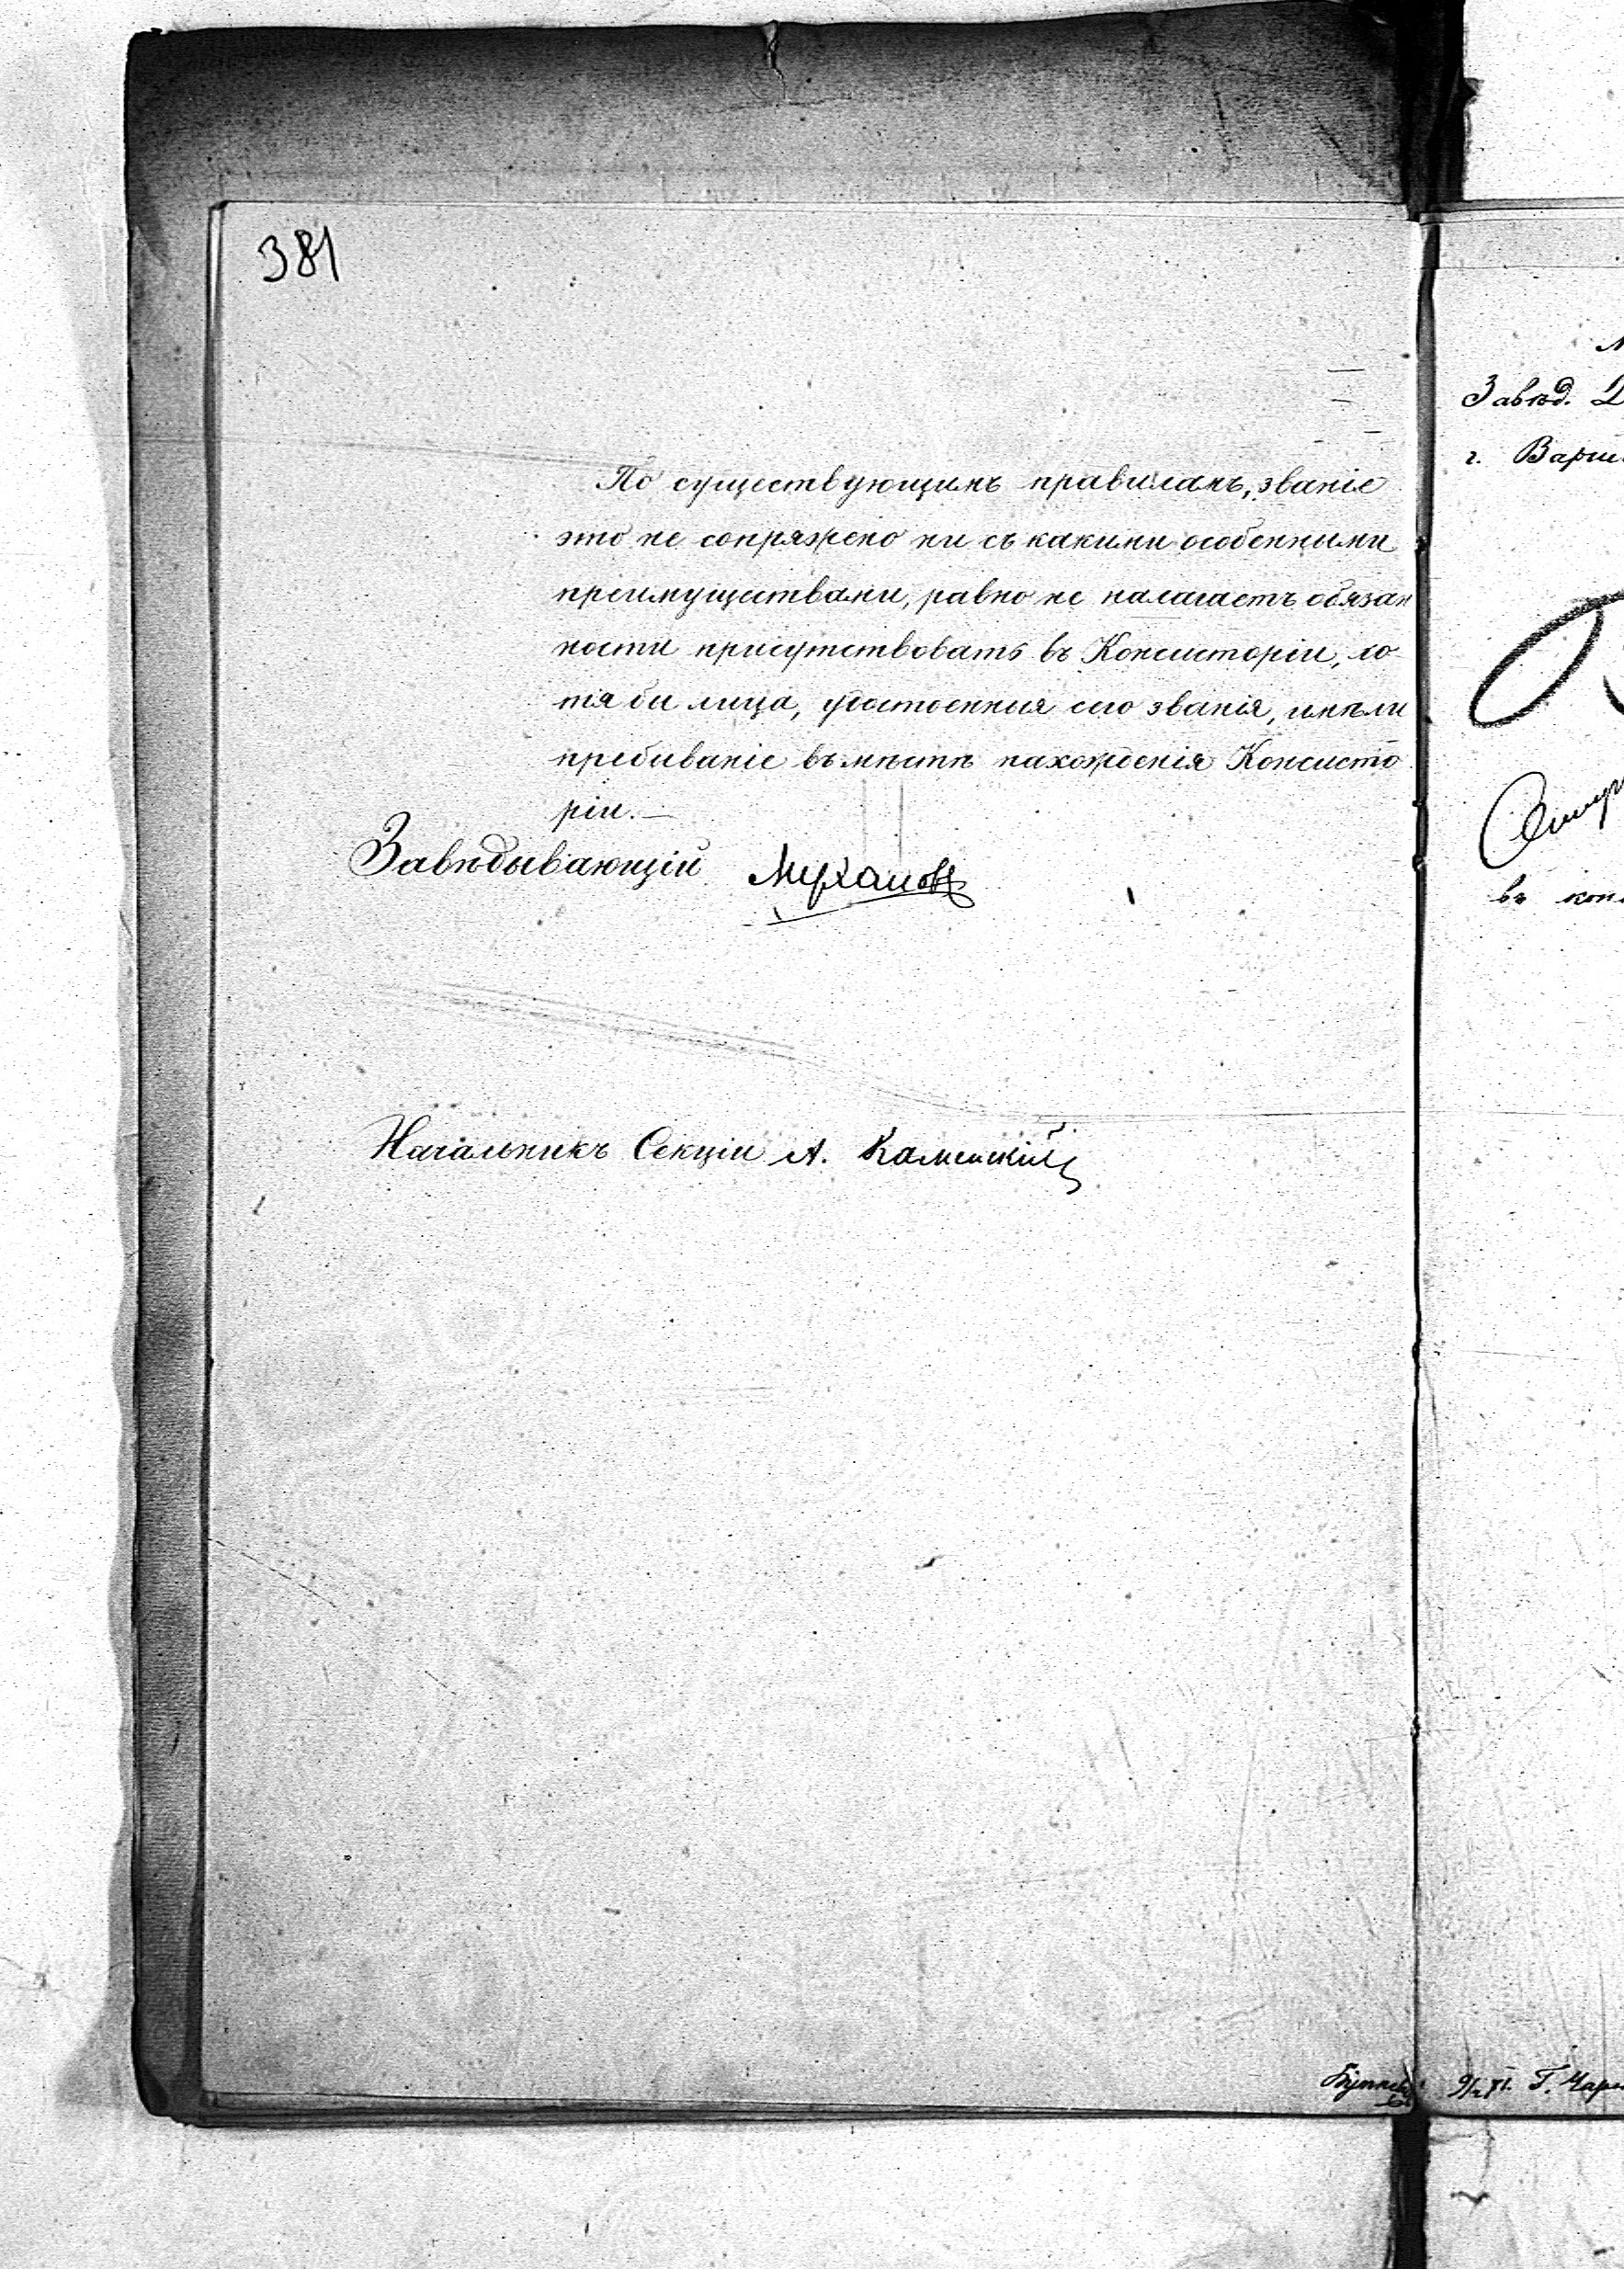 381
По существующимъ правиламъ, званіе
это не сопряжено ни съ какими особенными
преимуществами, равно не налагаетъ обязан
ности присутствовать въ Консисторіи, хо
тя бы лица, удостоенныя сего званія, имѣли
пребываніе въ мѣстѣ нахожденія Консисто
ріи.—
Завѣдывающій Мухановъ
Начальникъ Секціи А. Каменскій
Завѣд.
г.
въ